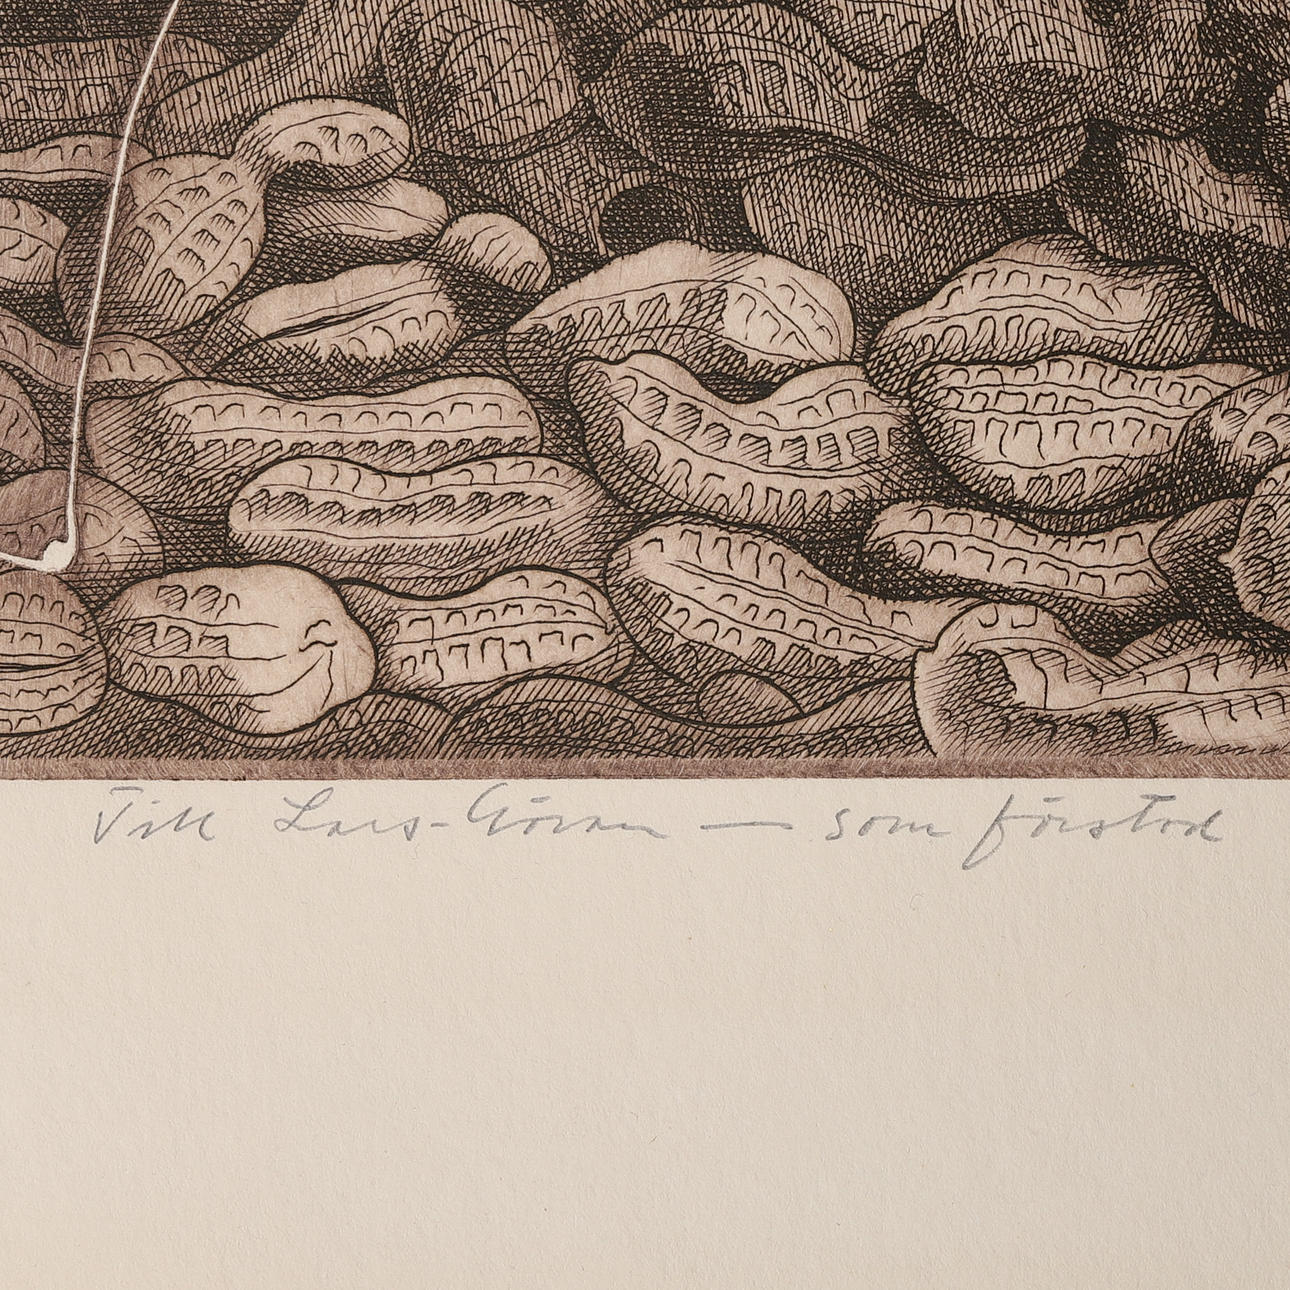 Till Lars-Göran — som förstod